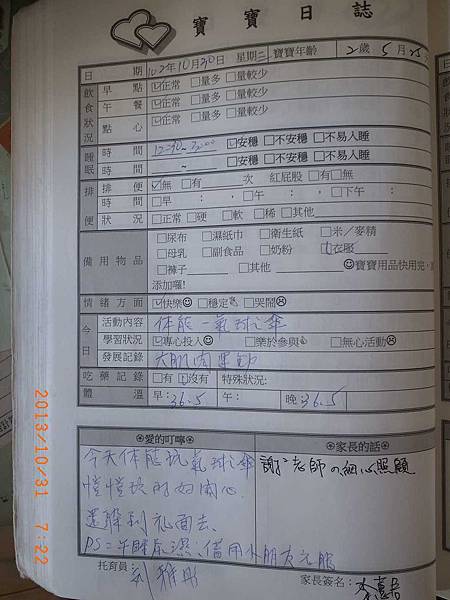 寶寶日誌
日期 102年10月30日 星期三 寶寶年齡 2歲5月25
飲食狀況 早點 ☑正常 □量多 □量較少
午餐 ☑正常 □量多 □量較少
點心 ☑正常 □量多 □量較少
睡眠 時間 ~ ☑安穩 □不安穩 □不易入睡
時間 ~ □安穩 □不安穩 □不易入睡
排便 排便 ☑無 □有 次 紅屁股 □有 □無
時間 □早 : , □午 : , □下午 :
便狀況 □正常 □硬 □軟 □稀 □其他
備用物品 □尿布 □濕紙巾 □衛生紙 □米／麥精
□母乳 □副食品 □奶粉 ☑衣服
□褲子 □其他 ☺寶寶用品快用完，
添加囉!
情緒方面 ☑快樂☺ □穩定 □哭鬧☹
今日 活動內容 體能-氣球傘
學習狀況 ☑專心投入☺ □樂於參與 □無心活動☹
發展記錄 大肌肉運動
吃藥記錄 □有 ☑沒有 特殊狀況:
體溫 早:36.5 午: 晚:36.5
2013/10/31 7:22
愛的叮嚀
今天体能玩氣球傘
愷愷玩的好開心
還聯到
PS=午睡尿濕、借用小朋友衣服
家長的話
謝謝老師の細心照顧
托育員:劉雅彤
家長簽名:李